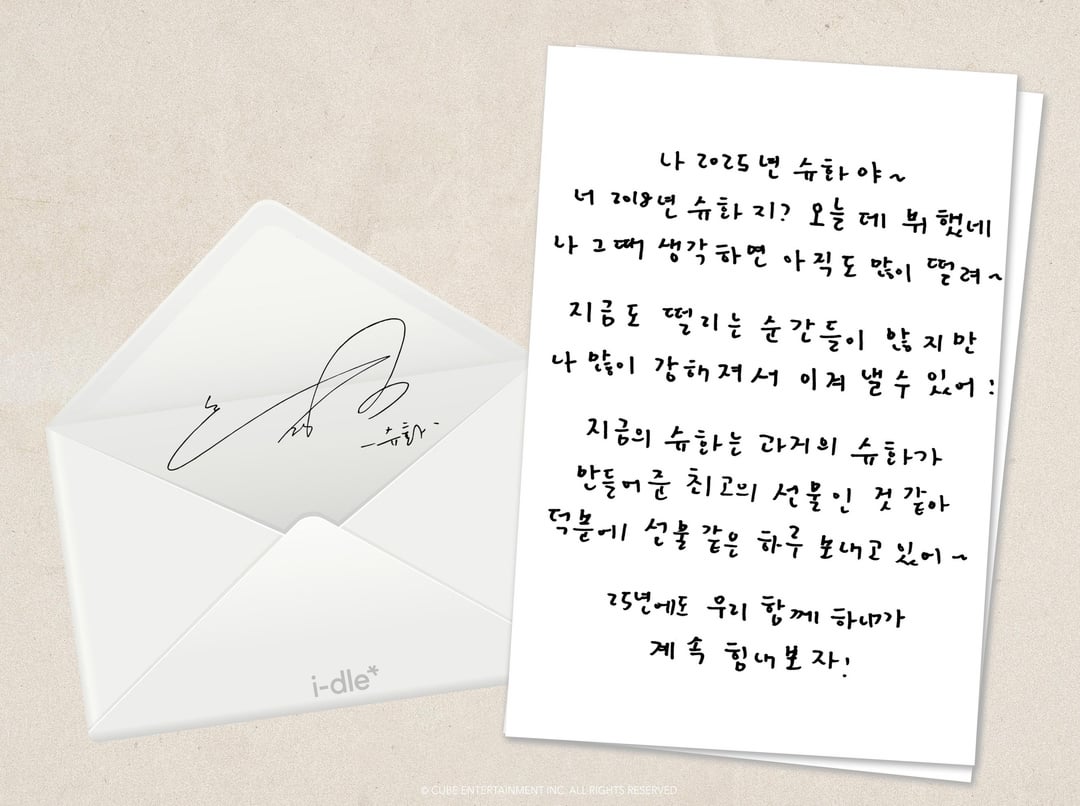 나 2025년 슈화야~
너 2018년 슈화지? 오늘 데뷔했네
나 그때 생각하면 아직도 많이 떨려~
지금도 떨리는 순간들이 많지만
나 많이 강해져서 이겨 낼 수 있어!
지금의 슈화는 과거의 슈화가
만들어준 최고의 선물인 것 같아
덕분에 선물 같은 하루 보내고 있어~
25년에도 우리 함께 하니까
계속 힘내보자!
-슈화-
i-dle*
© CUBE ENTERTAINMENT INC. ALL RIGHTS RESERVED